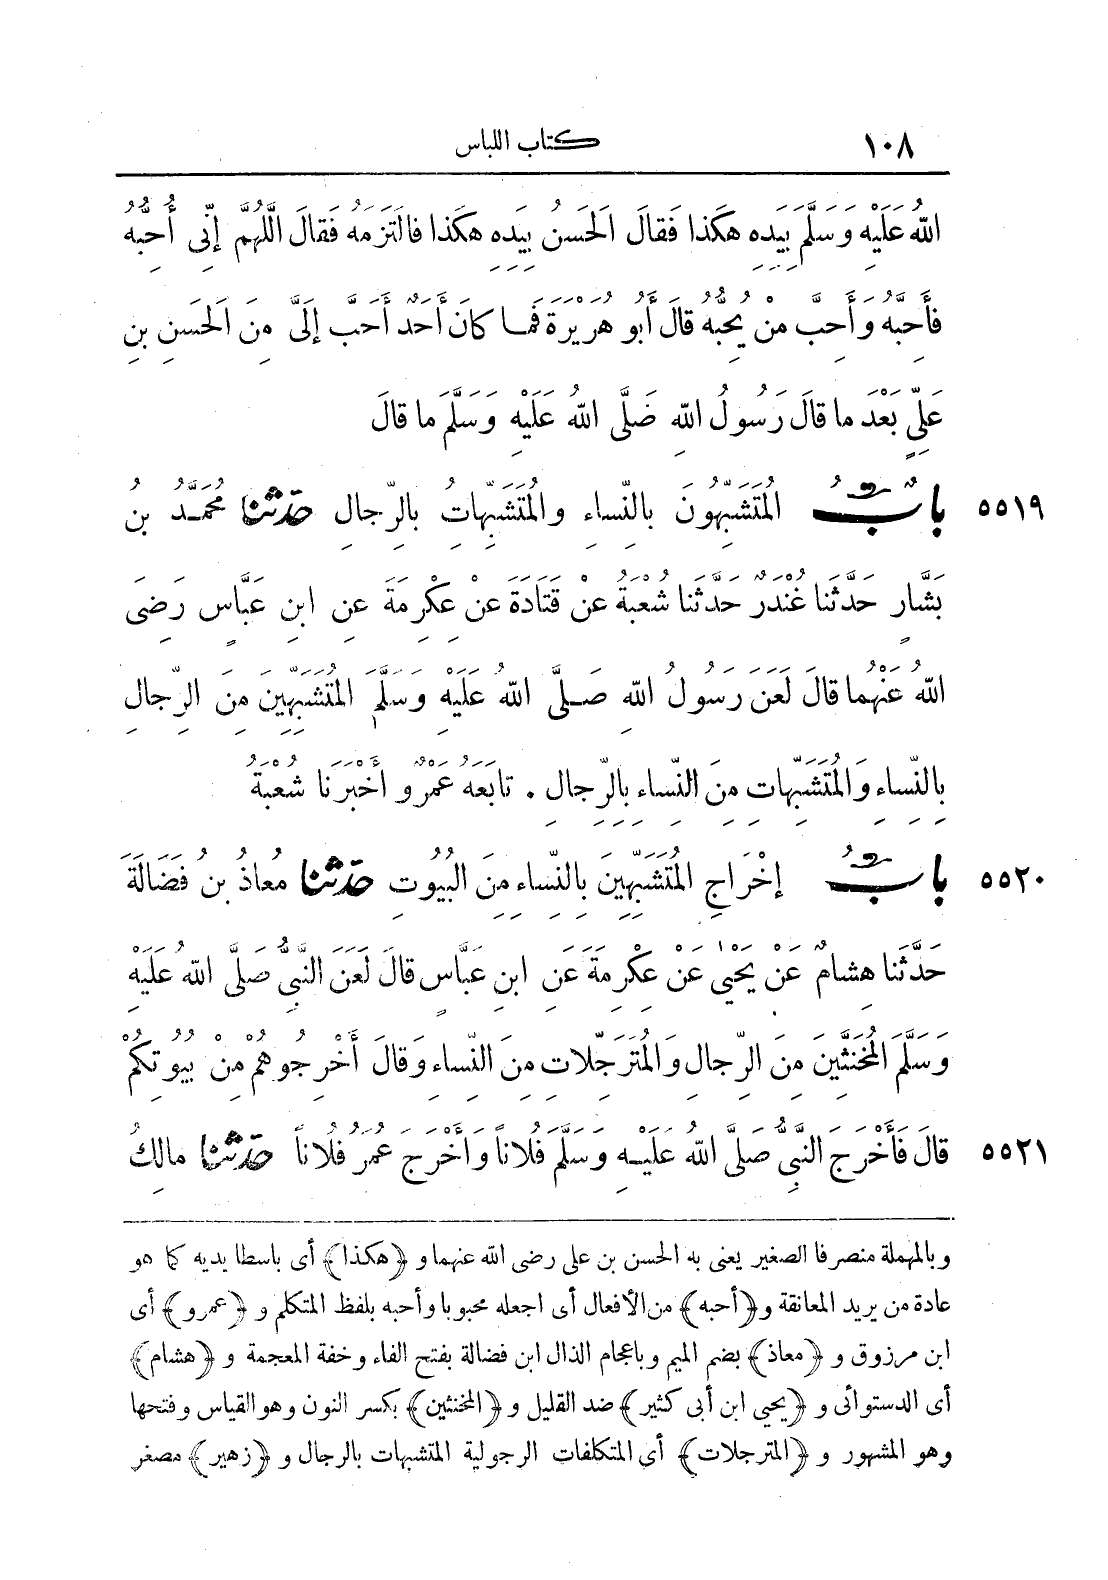 ١٠٨ كتاب اللباس
اللهُ عَلَيْهِ وَسَلَّمَ بِيَدِهِ هكَذا فَقالَ الَحَسَنُ بِيَدِهِ هكَذا فالَتَزَمَهُ فَقالَ اللَّهُمَّ إِنِّى أُحِبُّهُ
فَأَحِبَّهُ وَأَحِبَّ مَنْ يُحِبُّهُ قالَ أَبُو هُرَيْرَةَ فَمَا كانَ أَحَدٌ أَحَبَّ إِلَىَّ مِنَ الَحَسَنِ بنِ
عَلِىٍّ بَعْدَ ما قالَ رَسُولُ اللهِ صَلَّى اللهُ عَلَيْهِ وَسَلَّمَ ما قالَ
٥٥١٩ بابُ المُتَشَبِّهُونَ بالنِّساءِ والمُتَشَبِّهاتُ بالرِّجالِ حدثنا مُحَمَّدُ بنُ
بَشَّارٍ حَدَّثَنا غُنْدَرٌ حَدَّثَنا شُعْبَةُ عَنْ قَتَادَةَ عَنْ عِكْرِمَةَ عَنِ ابنِ عَبَّاسٍ رَضِىَ
اللهُ عَنْهُما قالَ لَعَنَ رَسُولُ اللهِ صَلَّى اللهُ عَلَيْهِ وَسَلَّمَ المُتَشَبِّهِينَ مِنَ الرِّجالِ
بالنِّساءِ وَالمُتَشَبِّهاتِ مِنَ النِّساءِ بالرِّجالِ . تابَعَهُ عَمْرٌو أَخْبَرَنا شُعْبَةُ
٥٥٢٠ بابُ إخْرَاجِ المُتَشَبِّهِينَ بالنِّساءِ مِنَ البُيُوتِ حدثنا مُعاذُ بنُ فَضَالَةَ
حَدَّثَنا هِشامٌ عَنْ يَحْيٰ عَنْ عِكْرِمَةَ عَنِ ابنِ عَبَّاسٍ قالَ لَعَنَ النَّبِىُّ صَلَّى اللهُ عَلَيْهِ
وَسَلَّمَ المُخَنَّثِينَ مِنَ الرِّجالِ وَالمُتَرَجِّلاتِ مِنَ النِّساءِ وَقالَ أَخْرِجُوهُمْ مِنْ بُيُوتِكُمْ
٥٥٢١ قالَ فَأَخْرَجَ النَّبِىُّ صَلَّى اللهُ عَلَيْهِ وَسَلَّمَ فُلاناً وَأَخْرَجَ عُمَرُ فُلاناً حدثنا مالِكُ
وبالمهملة منصرفا الصغير يعنى به الحسن بن على رضى الله عنهما و ﴿هكذا﴾ أى باسطا يديه كما هو
عادة من يريد المعانقة و﴿أحبه﴾ من الأفعال أى اجعله محبوبا وأحبه بلفظ المتكلم و ﴿عمرو﴾ أى
ابن مرزوق و ﴿معاذ﴾ بضم الميم وباعجام الذال ابن فضالة بفتح الفاء وخفة المعجمة و ﴿هشام﴾
أى الدستوائى و ﴿يحيى ابن أبى كثير﴾ ضد القليل و ﴿المخنثين﴾ بكسر النون وهو القياس وفتحها
وهو المشهور و ﴿المترجلات﴾ أى المتكلفات الرجولية المتشبهات بالرجال و ﴿زهير﴾ مصغر